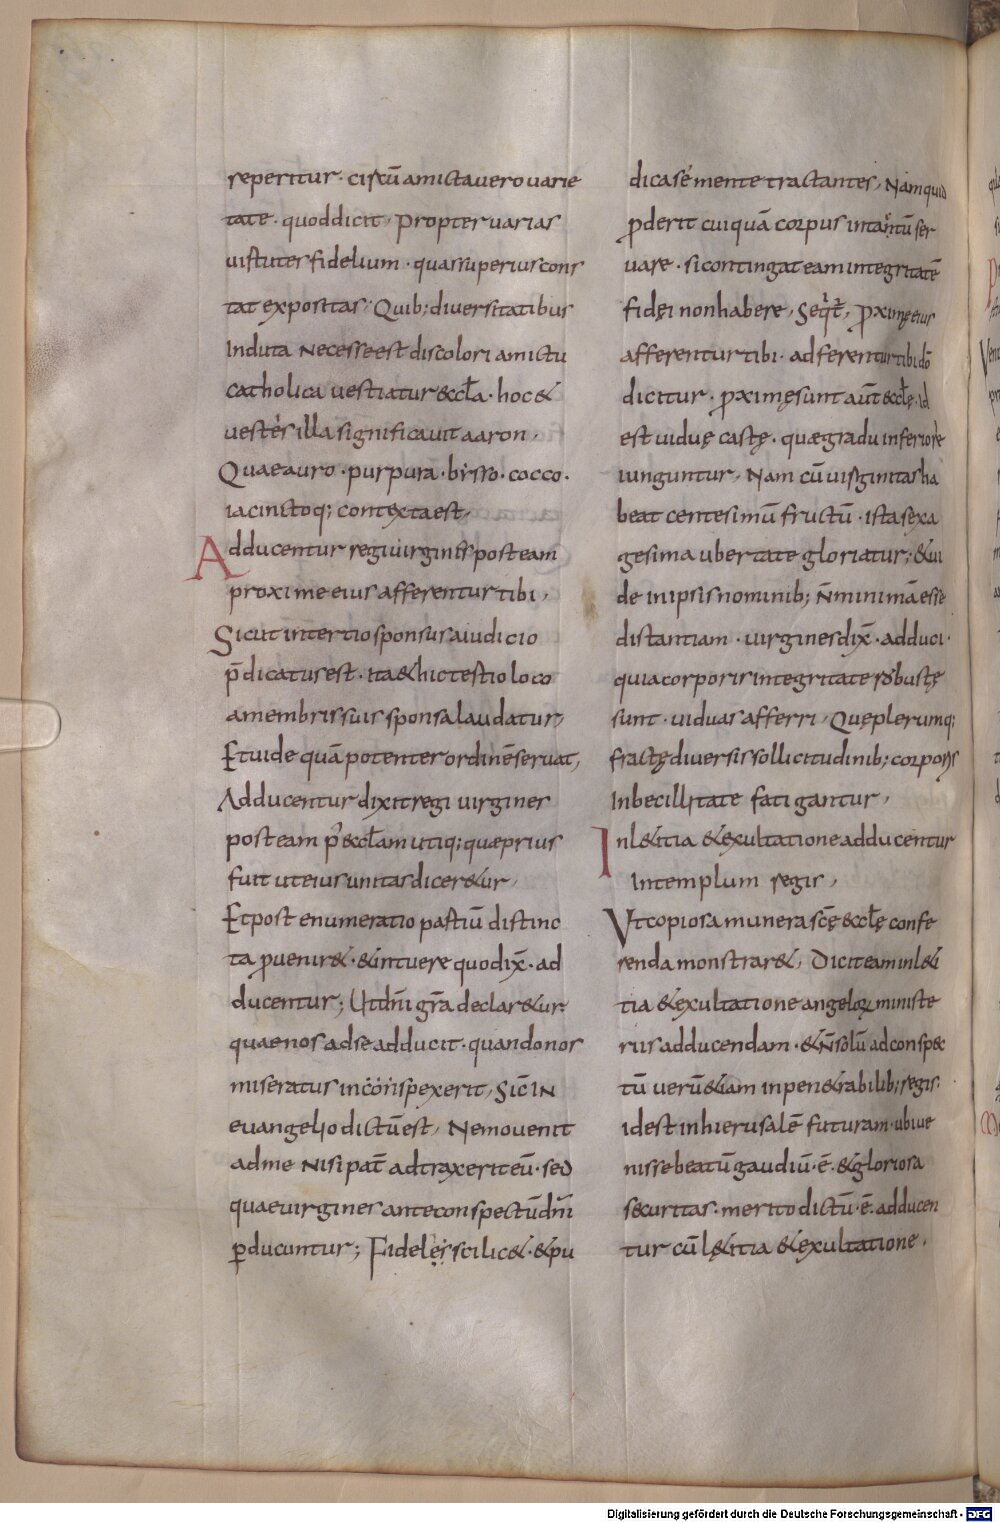 reperitur. circũ amicta vero varie
tate. quod dicit, propter varias
uirtutes fidelium. quas superius cons
tat expositas, Quib; diversitatibus
Induta Necesse est discolori amictu
catholica vestiatur &ccła. hoc &
uestes illa significavit aaron,
Quae auro. purpura. bysso. cocco.
iacinctoq; contexta est,
Adducentur regi uirgines post eam
proxime eius afferentur tibi,
Sicut in tertio sponsus a iudicio
p̄dicatus est. ita & hic testio loco
a membris suis sponsa laudatur,
Et uide quã potenter ordinẽ servat,
Adducentur dixit regi virgines
post eam p &ccłam utiq; quae prius
fuit ut eius unitas dicer&ur,
Et post enumeratio partiũ distinc
ta pvenir&. & intuere quod dix̄. ad
ducentur; Ut dn̄i gr̄a declar&ur.
quae nos ad se adducit. quando nos
miseratus inconspexerit, Sic̄ IN
euangelio dictũ est, Nemo venit
ad me Nisi pat̄ adtraxerit eũ. sed
quae virgines ante conspectũ dn̄i
pducuntur; Fideles scilic&. & pu
dicas e mente tractantes, Nam quid
pderit cuiquã corpus intantũ ser
uare. si contingat eam integritatẽ
fidęi non habere, Seqt̄, pximę eius
afferentur tibi. ad ferentur tibi dō
dicitur. pximę sunt aut̄ &cclę. id
est viduę castę. quae gradu inferiore
iunguntur, Nam cũ virginitas ha
beat centesimũ fructũ. ista sexa
gesima ubertate gloriatur; & ui
de in ipsis nominib; n̄ minimã esse
distantiam. virgines dix̄. adduci.
quia corporis integritate robustę
sunt. viduas afferri, Quę plerumq;
fractę diversis sollicitudinib; corporis
Inbecillitate fatigantur,
In l&itia & exultatione adducentur
In templum regis,
Ut copiosa munera scę &cclę confe
renda monstrar&, Dicit eam in l&i
tia & exultatione angeloꝝ ministe
riis adducendam. & n̄ solũ ad conspec
tũ verũ &iam in pen&rabilib; regis.
id est in hierusalẽ futuram. ubi ue
nisse beatũ gaudiũ. ẽ. & gloriosa
securitas. merito dictũ. ẽ. adducen
tur cũ l&itia & exultatione.
Digitalisierung gefördert durch die Deutsche Forschungsgemeinschaft - DFG